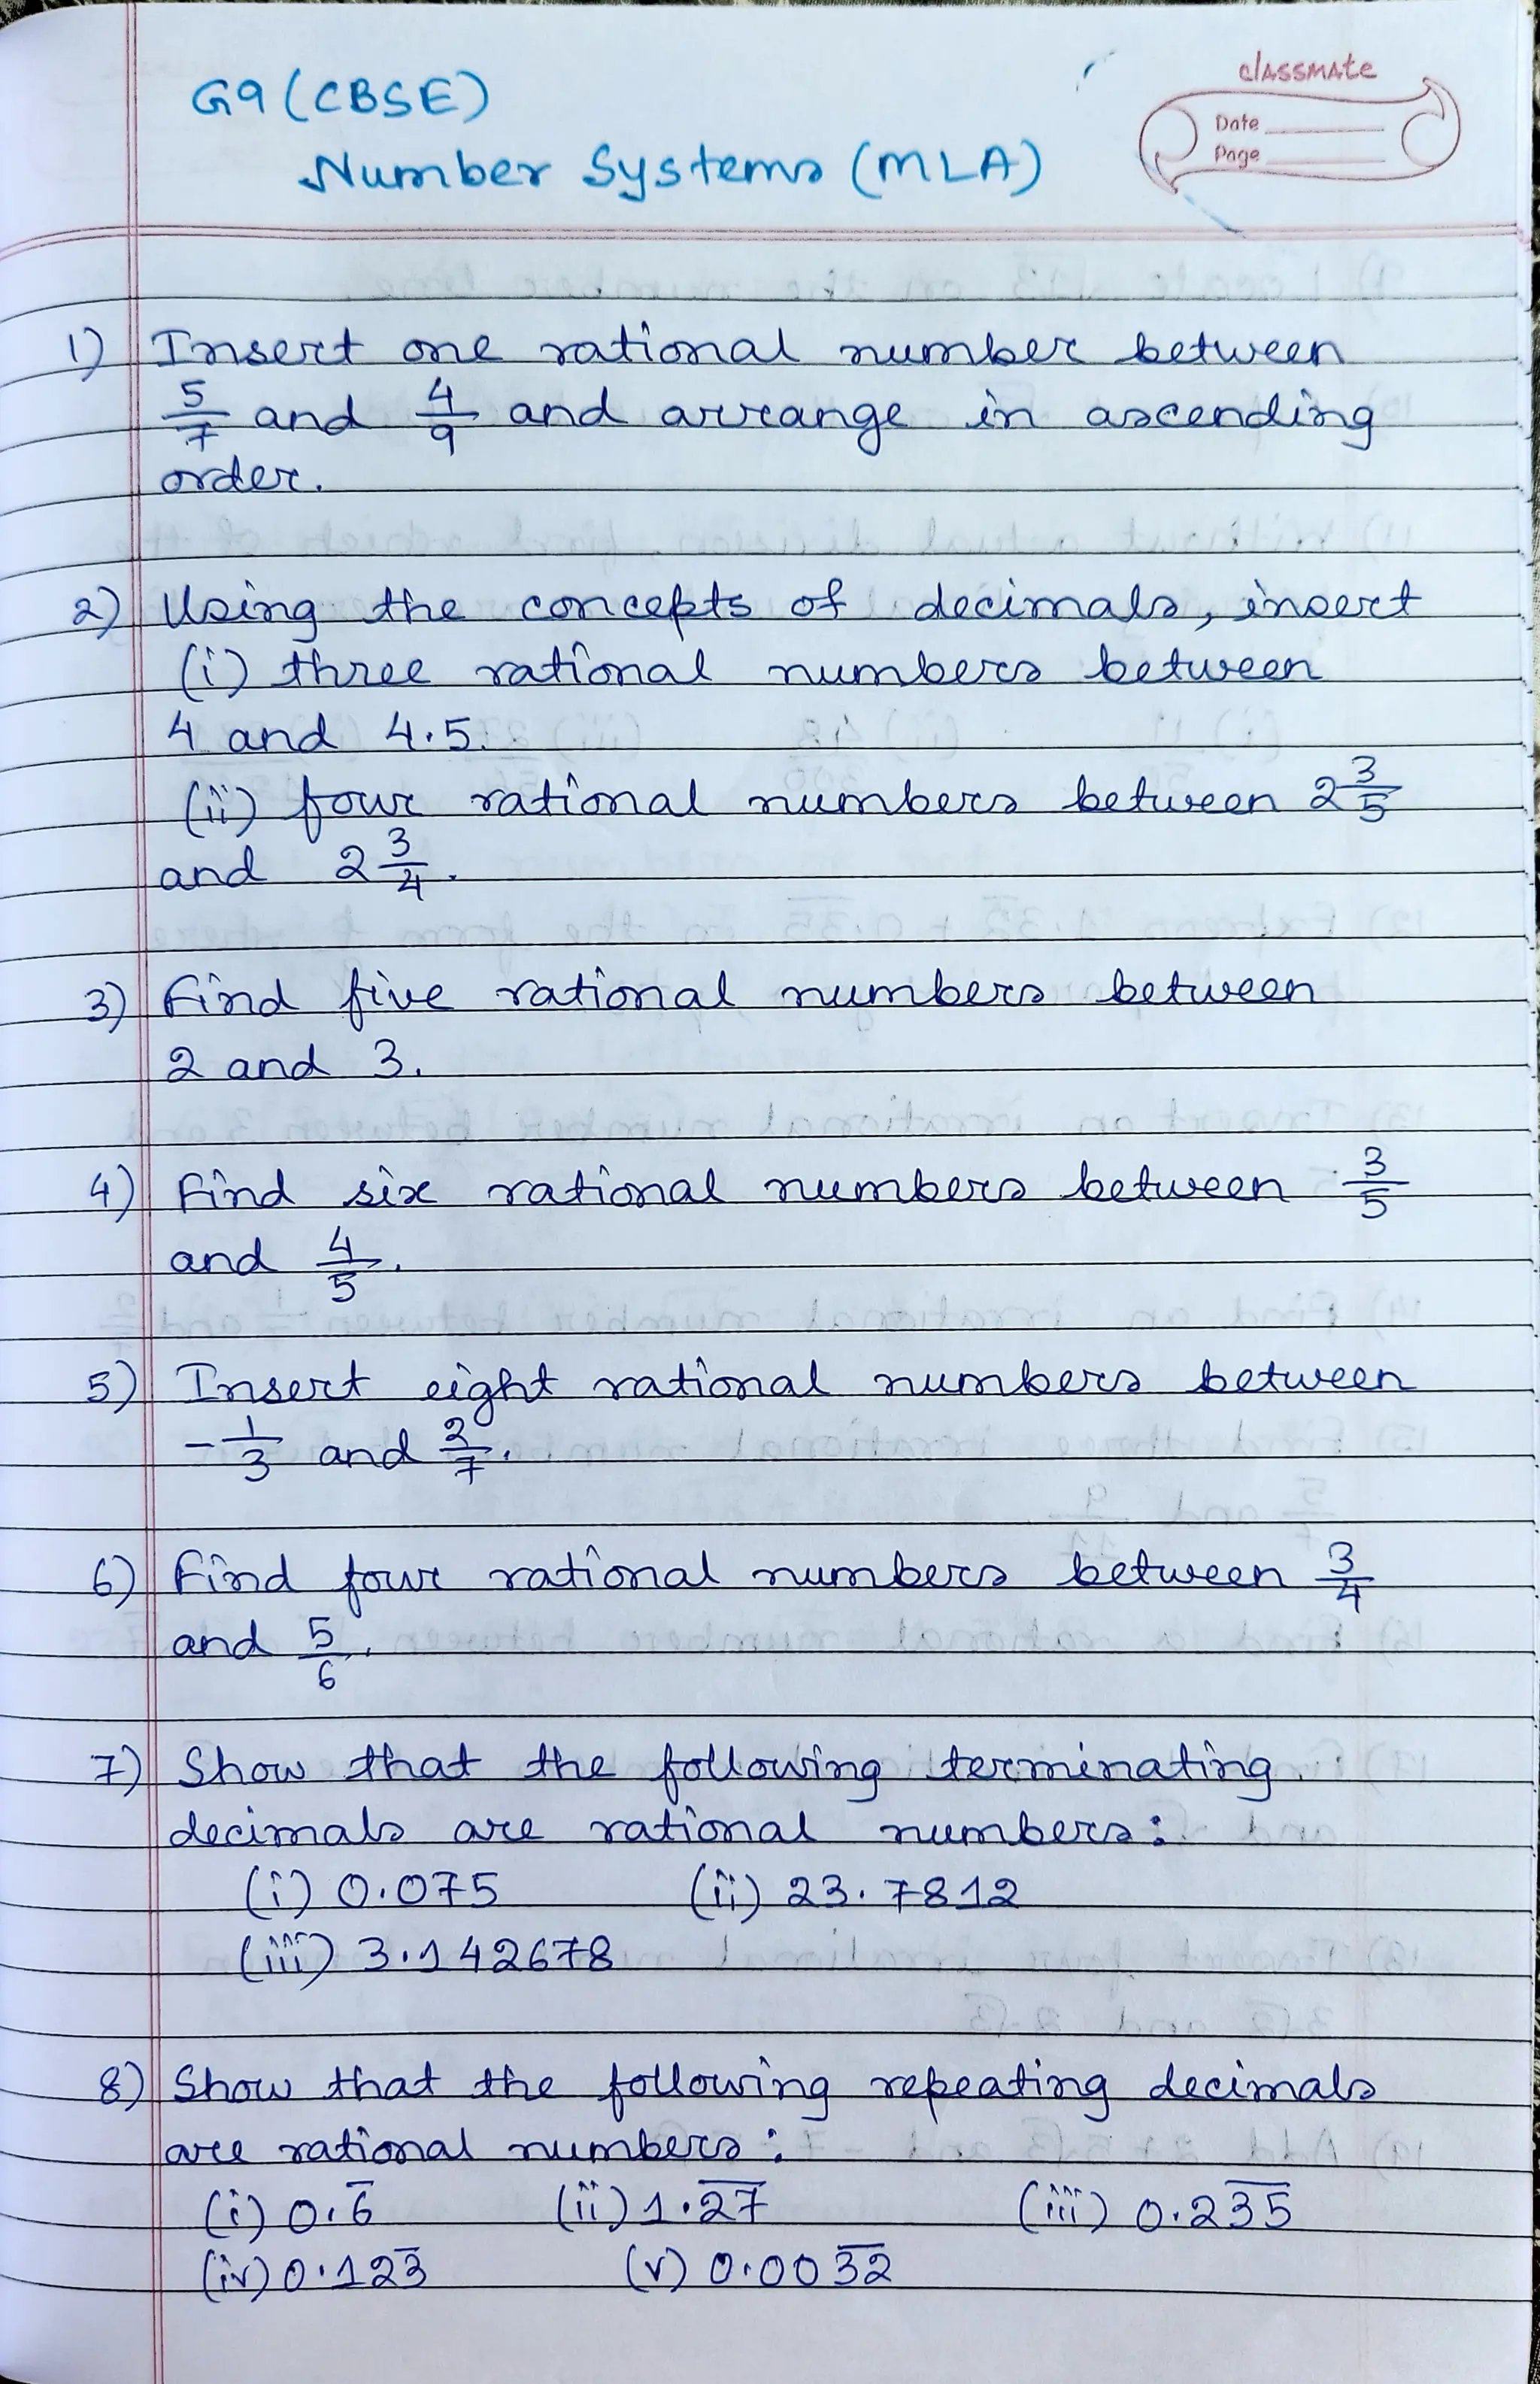 G9 (CBSE)
Number Systems (MLA)
classmate
Date
Page
1) Insert one rational number between
5/7 and 4/9 and arrange in ascending
order.
2) Using the concepts of decimals, insert
(i) three rational numbers between
4 and 4.5.
(ii) four rational numbers between 2 3/5
and 2 3/4.
3) Find five rational numbers between
2 and 3.
4) Find six rational numbers between 3/5
and 4/5.
5) Insert eight rational numbers between
-1/3 and 2/7.
6) Find four rational numbers between 3/4
and 5/6.
7) Show that the following terminating
decimals are rational numbers:
(i) 0.075 (ii) 23.7812
(iii) 3.142678
8) Show that the following repeating decimals
are rational numbers:
(i) 0.6̅ (ii) 1.2̅7̅ (iii) 0.23̅5̅
(iv) 0.123̅ (v) 0.003̅2̅